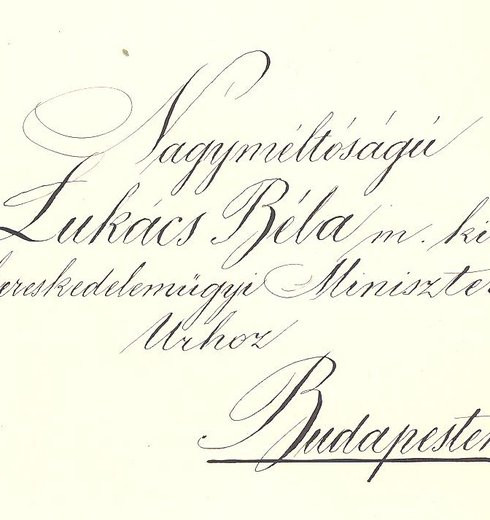 Nagyméltóságú
Lukács Béla m. ki
kereskedelemügyi Miniszte
Urhoz
Budapesten